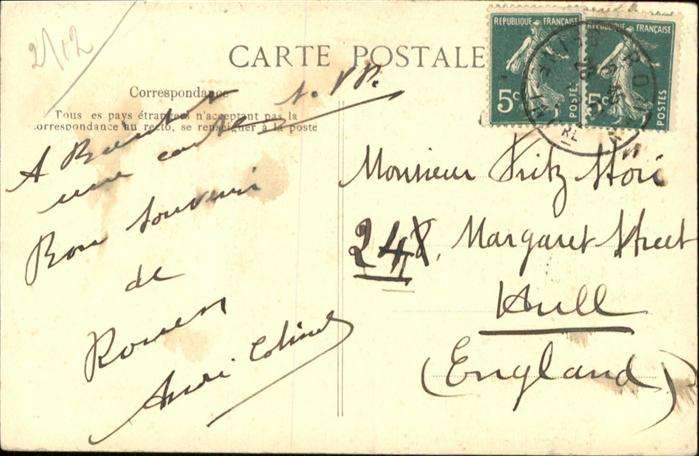 2/12
CARTE POSTALE
Correspondance
Tous es pays étrangers n'acceptent pas la
correspondance au recto, se renseigner à la poste
RÉPUBLIQUE FRANÇAISE
5c POSTES
RÉPUBLIQUE FRANÇAISE
5c POSTES
A
une carte S.V.P.
Bon Souvenir
de
Rouen
André
Monsieur Fritz
248, Margaret Street
Hull
(England)